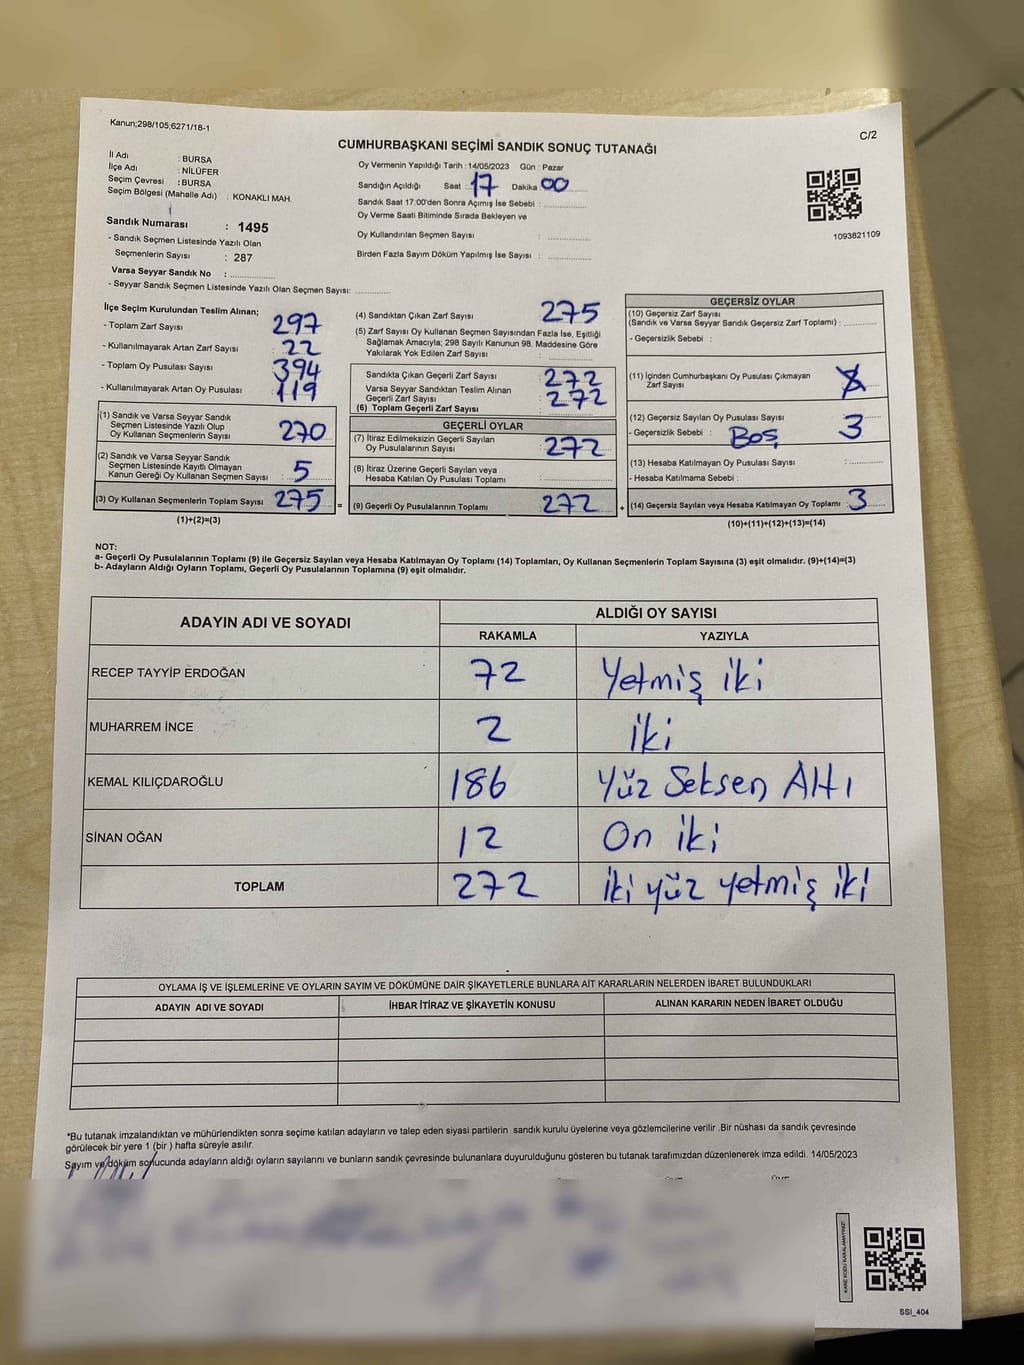 Kanun;298/105;6271/18-1
C/2
CUMHURBAŞKANI SEÇİMİ SANDIK SONUÇ TUTANAĞI
İl Adı : BURSA
İlçe Adı : NİLÜFER
Seçim Çevresi : BURSA
Seçim Bölgesi (Mahalle Adı) : KONAKLI MAH.
Sandık Numarası : 1495
- Sandık Seçmen Listesinde Yazılı Olan
Seçmenlerin Sayısı : 287
Varsa Seyyar Sandık No : ................
- Seyyar Sandık Seçmen Listesinde Yazılı Olan Seçmen Sayısı: ............
Oy Vermenin Yapıldığı Tarih : 14/05/2023 Gün : Pazar
Sandığın Açıldığı Saat : 17 Dakika 00
Sandık Saat 17:00'den Sonra Açımış İse Sebebi : ................
Oy Verme Saati Bitiminde Sırada Bekleyen ve
Oy Kullandırılan Seçmen Sayısı : ................
Birden Fazla Sayım Döküm Yapılmış İse Sayısı : ................
1093821109
İlçe Seçim Kurulundan Teslim Alınan;
- Toplam Zarf Sayısı 297
- Kullanılmayarak Artan Zarf Sayısı : 22
- Toplam Oy Pusulası Sayısı 394
- Kullanılmayarak Artan Oy Pusulası : 119
(1) Sandık ve Varsa Seyyar Sandık
Seçmen Listesinde Yazılı Olup
Oy Kullanan Seçmenlerin Sayısı : 270
(2) Sandık ve Varsa Seyyar Sandık
Seçmen Listesinde Kayıtlı Olmayan
Kanun Gereği Oy Kullanan Seçmen Sayısı : 5
(3) Oy Kullanan Seçmenlerin Toplam Sayısı : 275 =
(1)+(2)=(3)
(4) Sandıktan Çıkan Zarf Sayısı : 275
(5) Zarf Sayısı Oy Kullanan Seçmen Sayısından Fazla İse, Eşitliği
Sağlamak Amacıyla; 298 Sayılı Kanunun 98. Maddesine Göre
Yakılarak Yok Edilen Zarf Sayısı : ................
Sandıkta Çıkan Geçerli Zarf Sayısı : 272
Varsa Seyyar Sandıktan Teslim Alınan
Geçerli Zarf Sayısı
(6) Toplam Geçerli Zarf Sayısı : 272
GEÇERLİ OYLAR
(7) İtiraz Edilmeksizin Geçerli Sayılan
Oy Pusulalarının Sayısı : 272
(8) İtiraz Üzerine Geçerli Sayılan veya
Hesaba Katılan Oy Pusulası Toplamı : ................
(9) Geçerli Oy Pusulalarının Toplamı : 272 +
GEÇERSİZ OYLAR
(10) Geçersiz Zarf Sayısı
(Sandık ve Varsa Seyyar Sandık Geçersiz Zarf Toplamı) : ............
- Geçersizlik Sebebi :
(11) İçinden Cumhurbaşkanı Oy Pusulası Çıkmayan
Zarf Sayısı
(12) Geçersiz Sayılan Oy Pusulası Sayısı : 3
- Geçersizlik Sebebi : Boş
(13) Hesaba Katılmayan Oy Pusulası Sayısı : ............
- Hesaba Katılmama Sebebi :
(14) Geçersiz Sayılan veya Hesaba Katılmayan Oy Toplamı : 3
(10)+(11)+(12)+(13)=(14)
NOT:
a- Geçerli Oy Pusulalarının Toplamı (9) ile Geçersiz Sayılan veya Hesaba Katılmayan Oy Toplamı (14) Toplamları, Oy Kullanan Seçmenlerin Toplam Sayısına (3) eşit olmalıdır. (9)+(14)=(3)
b- Adayların Aldığı Oyların Toplamı, Geçerli Oy Pusulalarının Toplamına (9) eşit olmalıdır.
ADAYIN ADI VE SOYADI ALDIĞI OY SAYISI
RAKAMLA YAZIYLA
RECEP TAYYİP ERDOĞAN 72 Yetmiş iki
MUHARREM İNCE 2 iki
KEMAL KILIÇDAROĞLU 186 Yüz Seksen Altı
SİNAN OĞAN 12 On iki
TOPLAM 272 iki yüz yetmiş iki
OYLAMA İŞ VE İŞLEMLERİNE VE OYLARIN SAYIM VE DÖKÜMÜNE DAİR ŞİKAYETLERLE BUNLARA AİT KARARLARIN NELERDEN İBARET BULUNDUKLARI
ADAYIN ADI VE SOYADI İHBAR İTİRAZ VE ŞİKAYETİN KONUSU ALINAN KARARIN NEDEN İBARET OLDUĞU
*Bu tutanak imzalandıktan ve mühürlendikten sonra seçime katılan adayların ve talep eden siyasi partilerin sandık kurulu üyelerine veya gözlemcilerine verilir .Bir nüshası da sandık çevresinde
görülecek bir yere 1 (bir ) hafta süreyle asılır.
Sayım ve döküm sonucunda adayların aldığı oyların sayılarını ve bunların sandık çevresinde bulunanlara duyurulduğunu gösteren bu tutanak tarafımızdan düzenlenerek imza edildi. 14/05/2023
KARE KODU KARALAMAYINIZ!
SSI_404